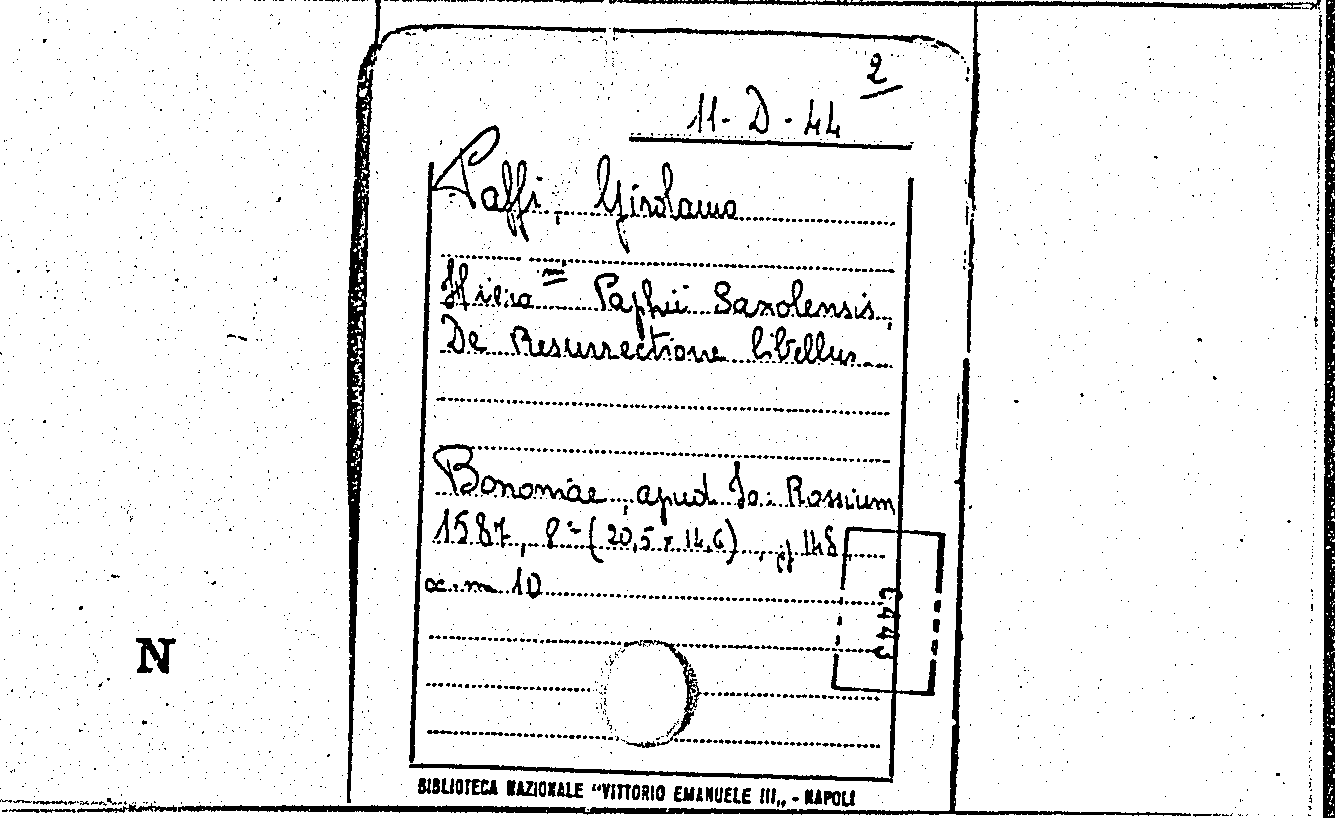 2
11-D-44
Paffi, Girolamo
Hiero = Paphii Saxolensis,
De Resurrectione libellus
Bononiae, apud Jo: Rossium
1587, 8º (20,5 x 14,6), cf 148
N
BIBLIOTECA NAZIONALE "VITTORIO EMANUELE III„ - NAPOLI